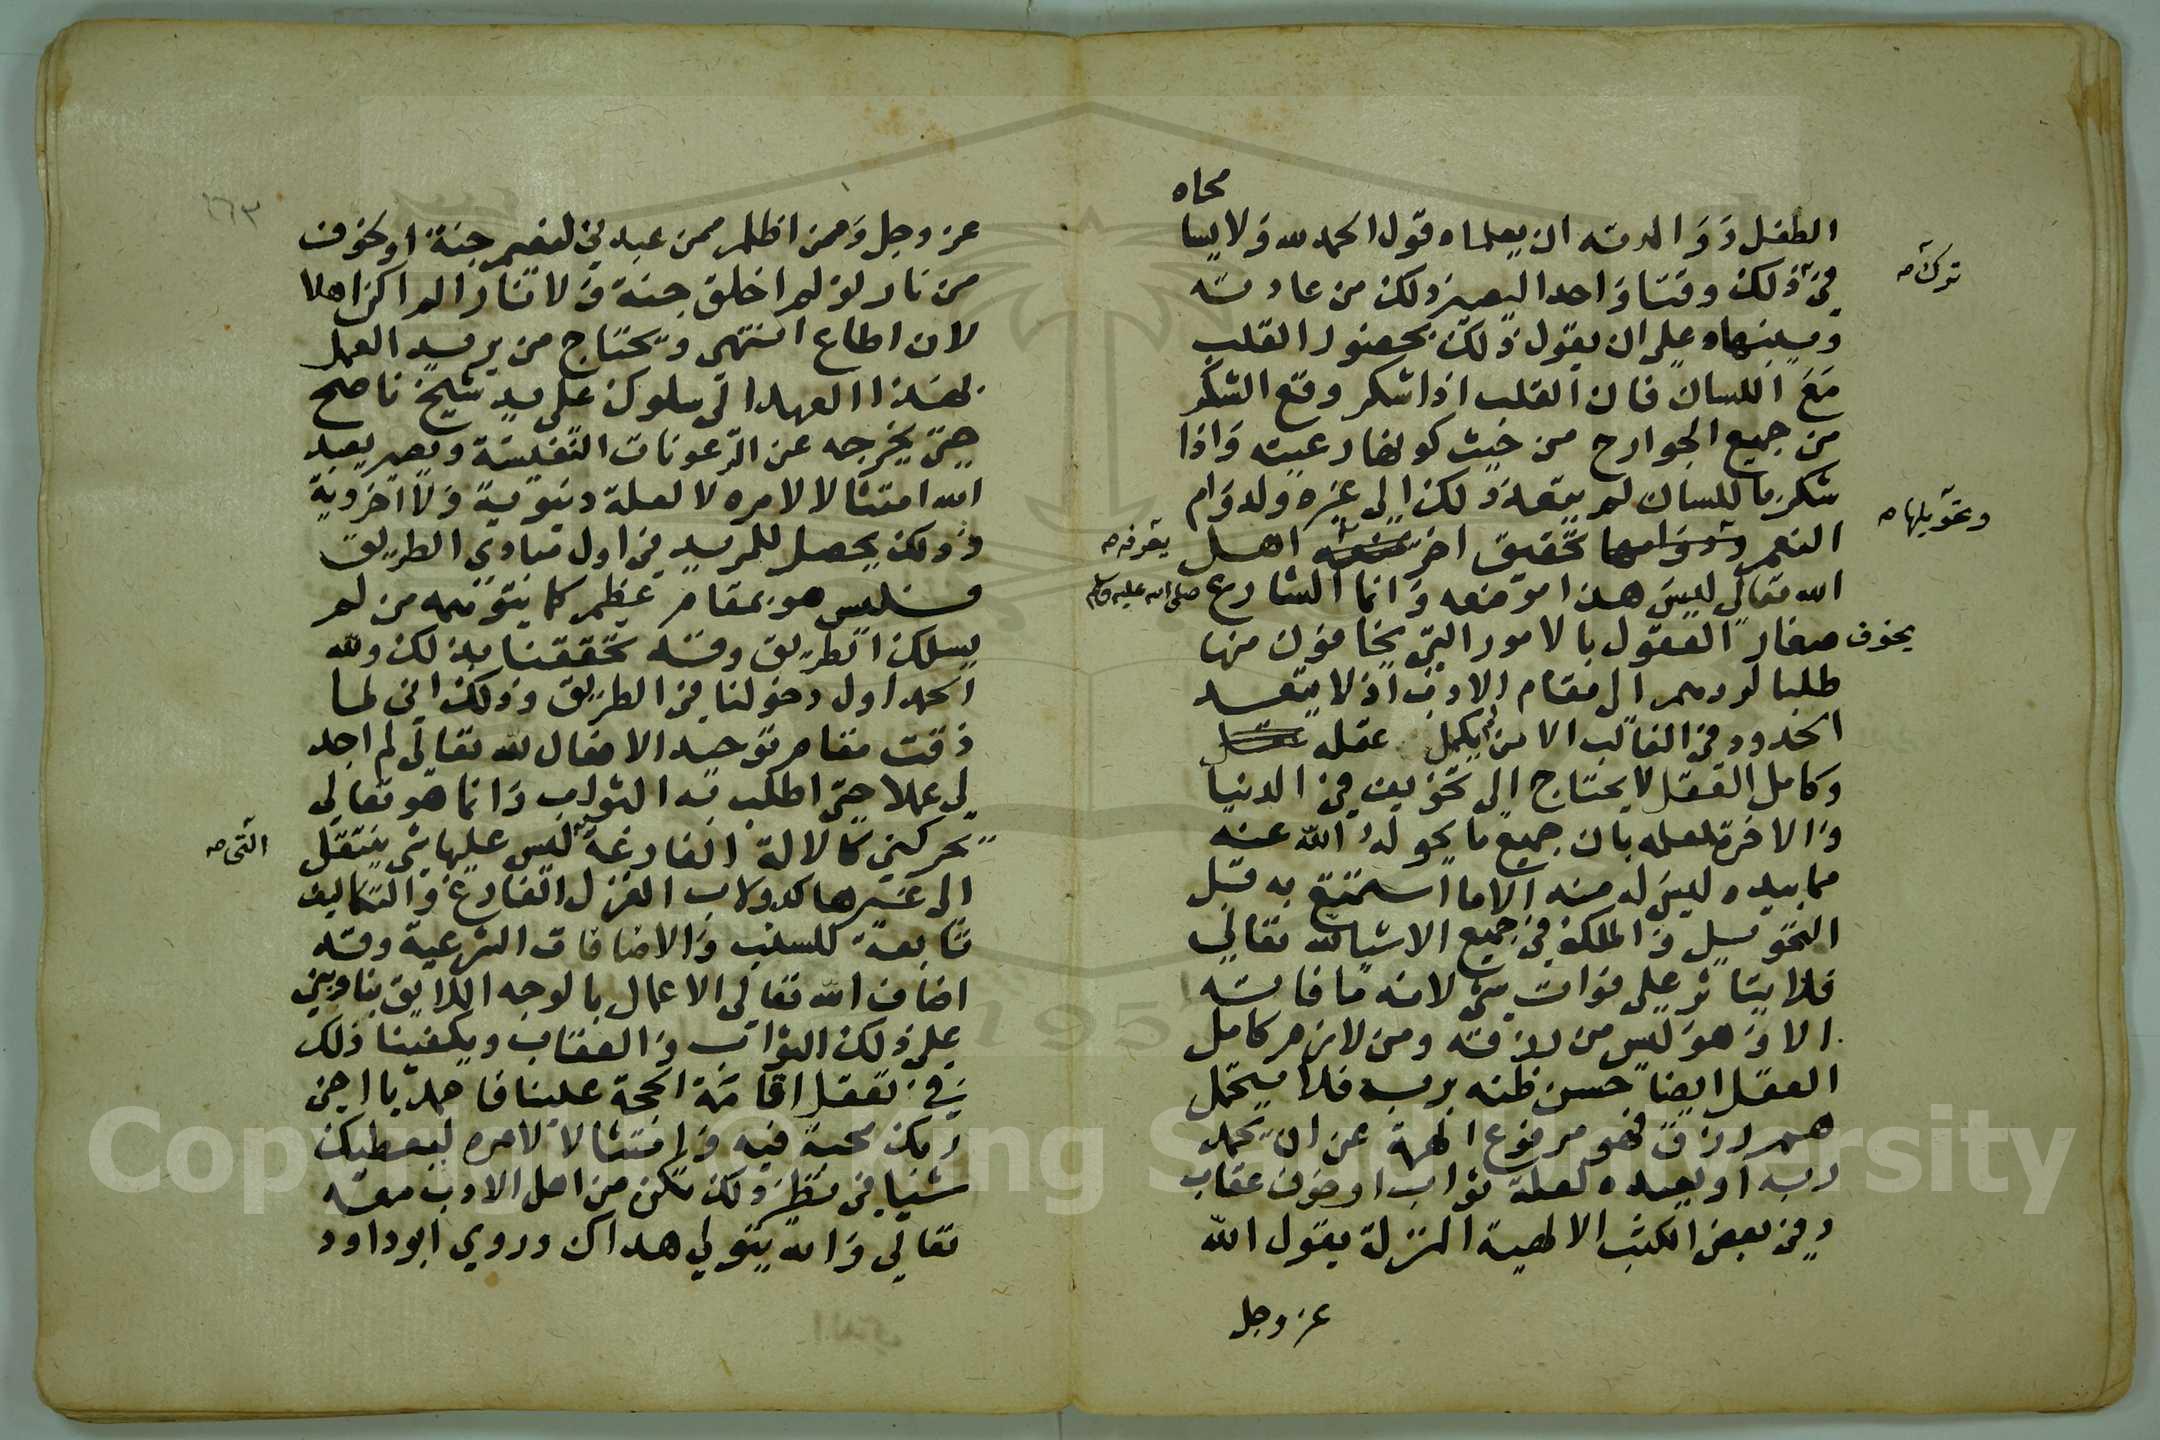 محاه
الطفل ووالدته ان يعلماه قول الحمد لله ولا يسا
في ذلك وقتا واحدا ليصير ذلك من عادته
توك صه
وينبهاه على ان يقول ذلك بحضور القلب
مع اللسان فان القلب اذا شكر وقع الشكر
من جميع الجوارح من حيث كونها رعيته واذا
شكر باللسان لم يتعد ذلك الى غيره ولدوام
النعم وتحويلها صه تحقيق اخر يعرفه صه اهل
الله تعالى ليس هذا موضعه وانما الشارع صلى الله عليه وسلم
يخوف صغار العقول بالامور التي يخافون منها
طلبا لردهم الى مقام الادب اذ لا يتعد
الحدود في الغالب الا من لم يكمل عقله
وكامل العقل لا يحتاج الى تخويف في الدنيا
والاخرة لعلمه بان جميع ما يحوله الله عنه
مما بيده ليس له منه الا ما استمتع به قبل
التحويل والملك في جميع الاشيا لله تعالى
فلا يتاثر على فوات شي لانه ما فاته
الا وهو ليس من رزقه ومن لازم كامل
العقل ايضا حسن ظنه بربه فلا يتحمل
هم رزق فهو مرفوع الهمة عن ان يحمد
ربه او يعبده لعلة ثواب او خوف عقاب
وفي بعض الكتب الالهية المنزلة يقول الله
عز وجل
١٦٣
عز وجل ومن اظلم ممن عبدني لنعيم جنة او خوف
من نار لو لم اخلق جنة ولا نارا الم اكن اهلا
لان اطاع انتهى ويحتاج من يريد العمل
بهذا العهد الى سلوك على يد شيخ ناصح
حتى يخرجه عن الرعونات النفسية ويصير يعبد
الله امتثالا لامره لا لعلة دنيوية ولا اخروية
وذلك يحصل للمريد في اول مبادي الطريق
فليس هو بمقام عظيم كما يتوهمه من لم
يسلك الطريق وقد تحققنا بذلك ولله
الحمد اول دخولنا في الطريق وذلك اني لما
ذقت مقام توحيد الافعال لله تعالى لم اجد
لي عملا حتى اطلب به الثواب وانما هو تعالى
يحركني كالالة الفارغة التي صه ليس عليها شي ينتقل
الى غيرها كدولاب الغزل الفارغ والتكاليف
تابعة للنسب والاضافات الشرعية وقد
اضاف الله تعالى الاعمال بالوجه اللايق بنا وبني
على ذلك الثواب والعقاب ويكفينا ذلك
في تعقل اقامة الحجة علينا فاحمد يا اخي
ربك محبة فيه وامتثالا لامره ليعطيك
شيا في نظر ذلك تكن من اهل الادب معه
تعالى والله يتولى هداك وروى ابو داود